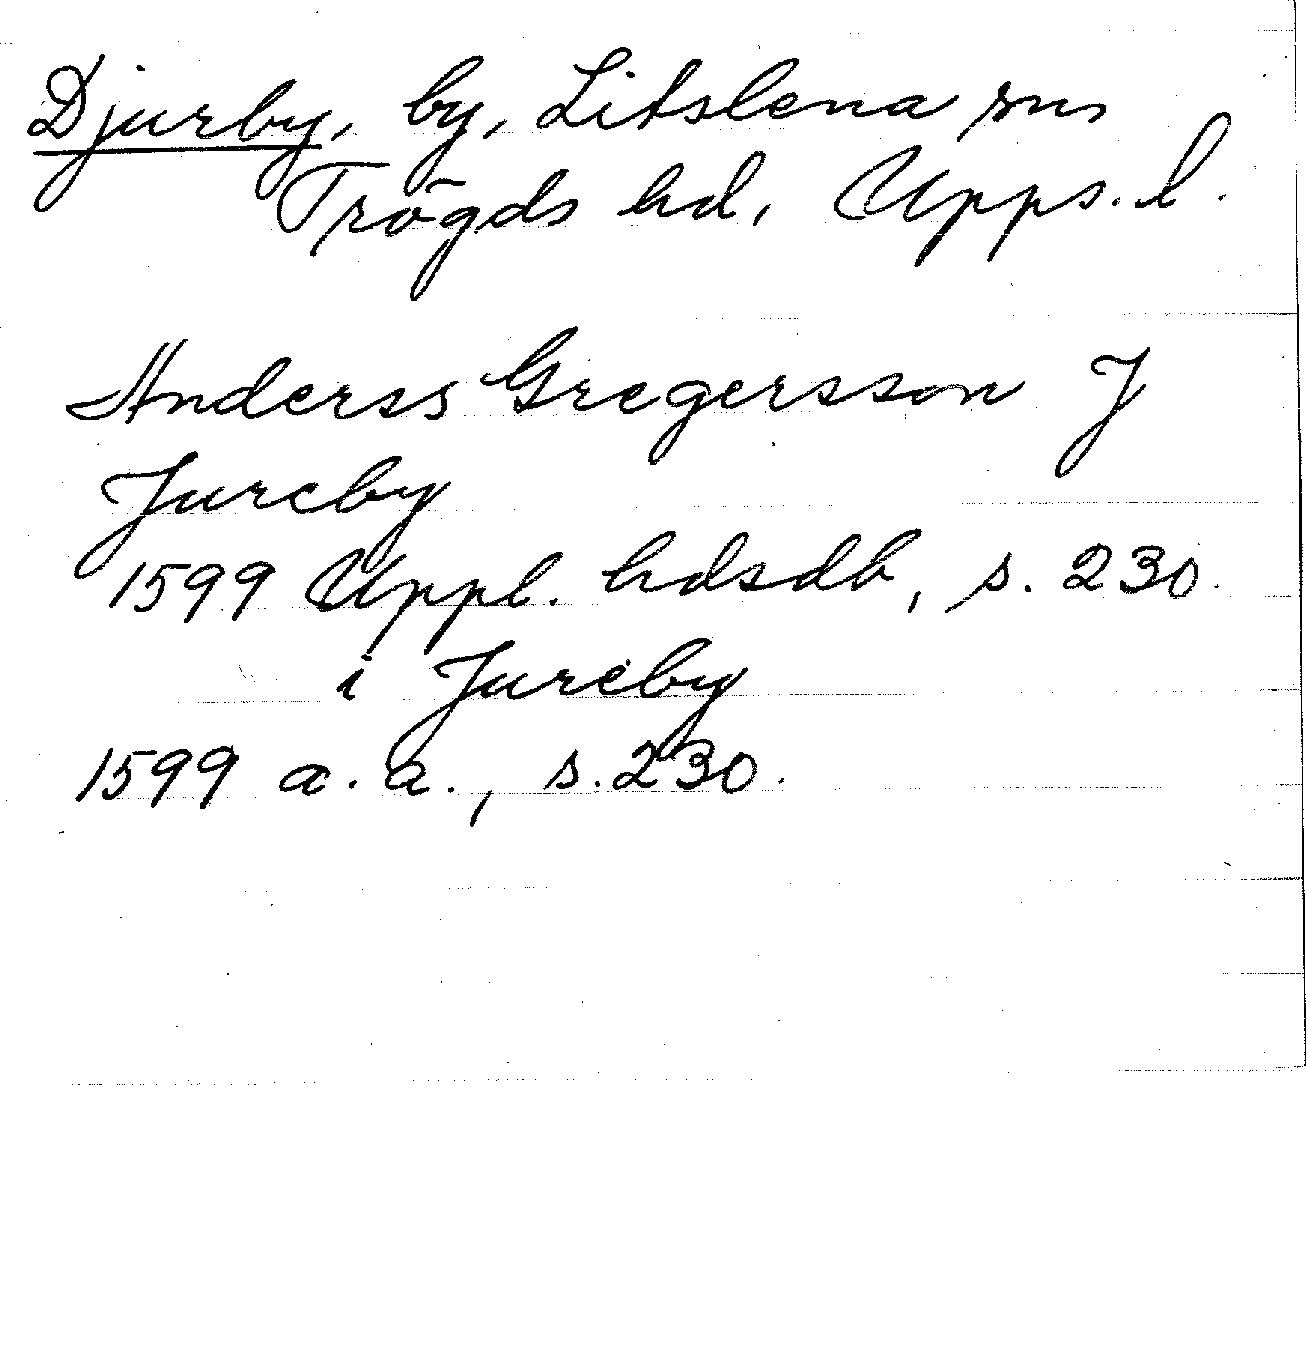 Djurby, by, Litslena sn
Trögds hd, Upps. l.
Anderss Gregersson J
Jureby
1599 Uppl. hdsdb, s. 230.
i Jureby
1599 a. a., s. 230.